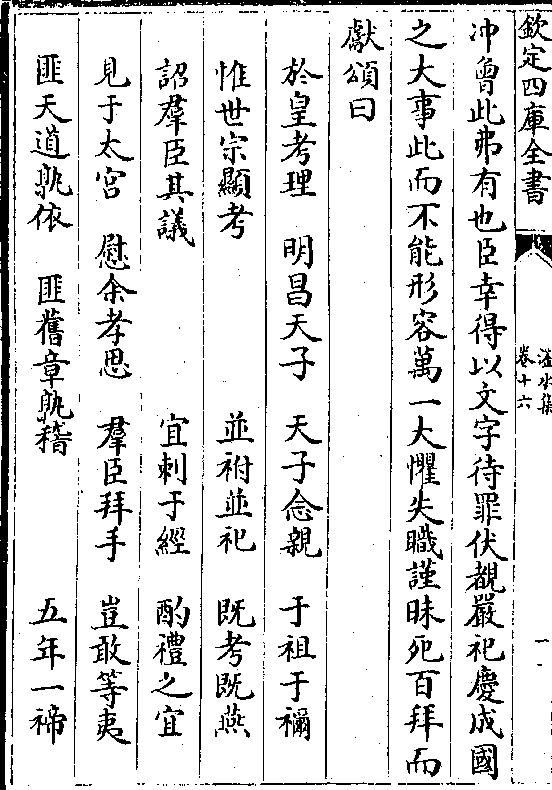 欽定四庫全書
滏水集
卷十六
一
冲曾此弗有也臣幸得以文字待罪伏覩嚴祀慶成國
之大事此而不能形容萬一大懼失職謹昧死百拜而
獻頌曰
於皇考理　明昌天子　天子念親　于祖于禰
惟世宗顯考　並祔並祀　既考既燕
詔羣臣其議　宜刺于經　酌禮之宜
見于太宮　慰余孝思　羣臣拜手　豈敢等夷
匪天道孰依　匪舊章孰稽　五年一禘